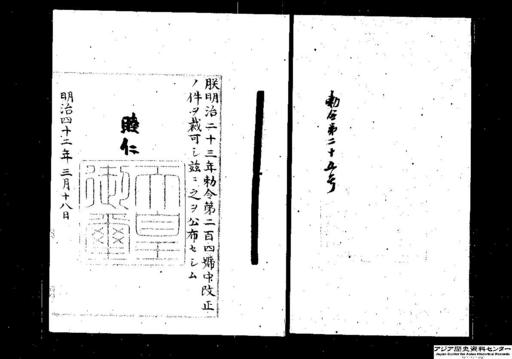 勅令第二十五号
朕明治二十三年勅令第二百四號中改正
ノ件ヲ裁可シ茲ニ之ヲ公布セシム
睦仁
天皇御璽
明治四十二年三月十八日
アジア歴史資料センター
Japan Center for Asian Historical Records